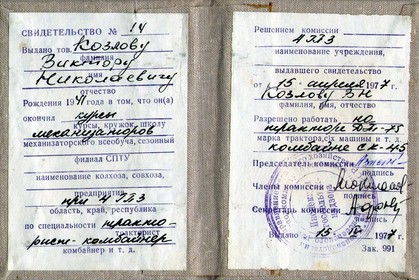 СВИДЕТЕЛЬСТВО № 14
Выдано тов. Козлову
фамилия
Виктору
имя
Николаевичу
отчество
Рождения 1941 года в том, что он(а)
окончил курсы
курсы, кружок, школу
механизаторов
механизаторского всеобуча, сезонный
филиал СПТУ
наименование колхоза, совхоза,
предприятия
при 4 ГПЗ
область, край, республика
по специальности тракто-
тракторист
рист-комбайнер
комбайнер и т. д.
Решением комиссии
4 ГПЗ
наименование учреждения,
выдавшего свидетельство
от 15 апреля 1977 г.
Козлову В Н
фамилия, имя, отчество
Разрешено работать на
тракторе ДТ-75
марка трактора, с/х машины и т. д.
комбайне СК-
Председатель комиссии
подпись
Члены комиссии
подпись
Секретарь комиссии
подпись
Выдано 15. IV 1977
Зак. 991